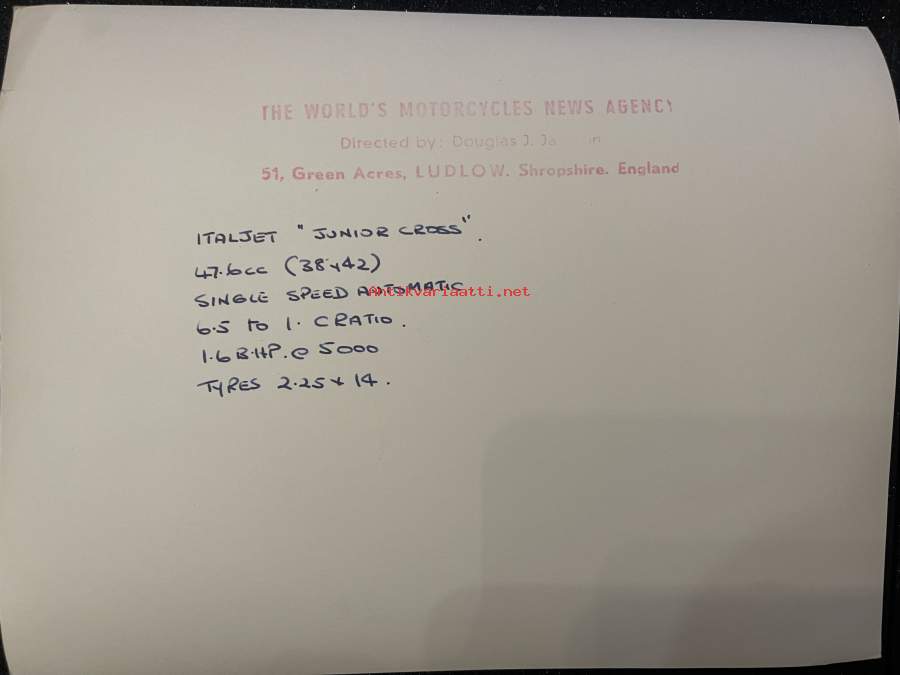 THE WORLD'S MOTORCYCLES NEWS AGENCY
Directed by: Douglas J.
51, Green Acres, LUDLOW. Shropshire. England
ITALJET "JUNIOR CROSS".
47.6cc (38 x 42)
SINGLE SPEED AUTOMATIC
Antikvariaatti.net
6.5 to 1. C RATIO.
1.6 B.H.P. @ 5000
TYRES 2.25 x 14.